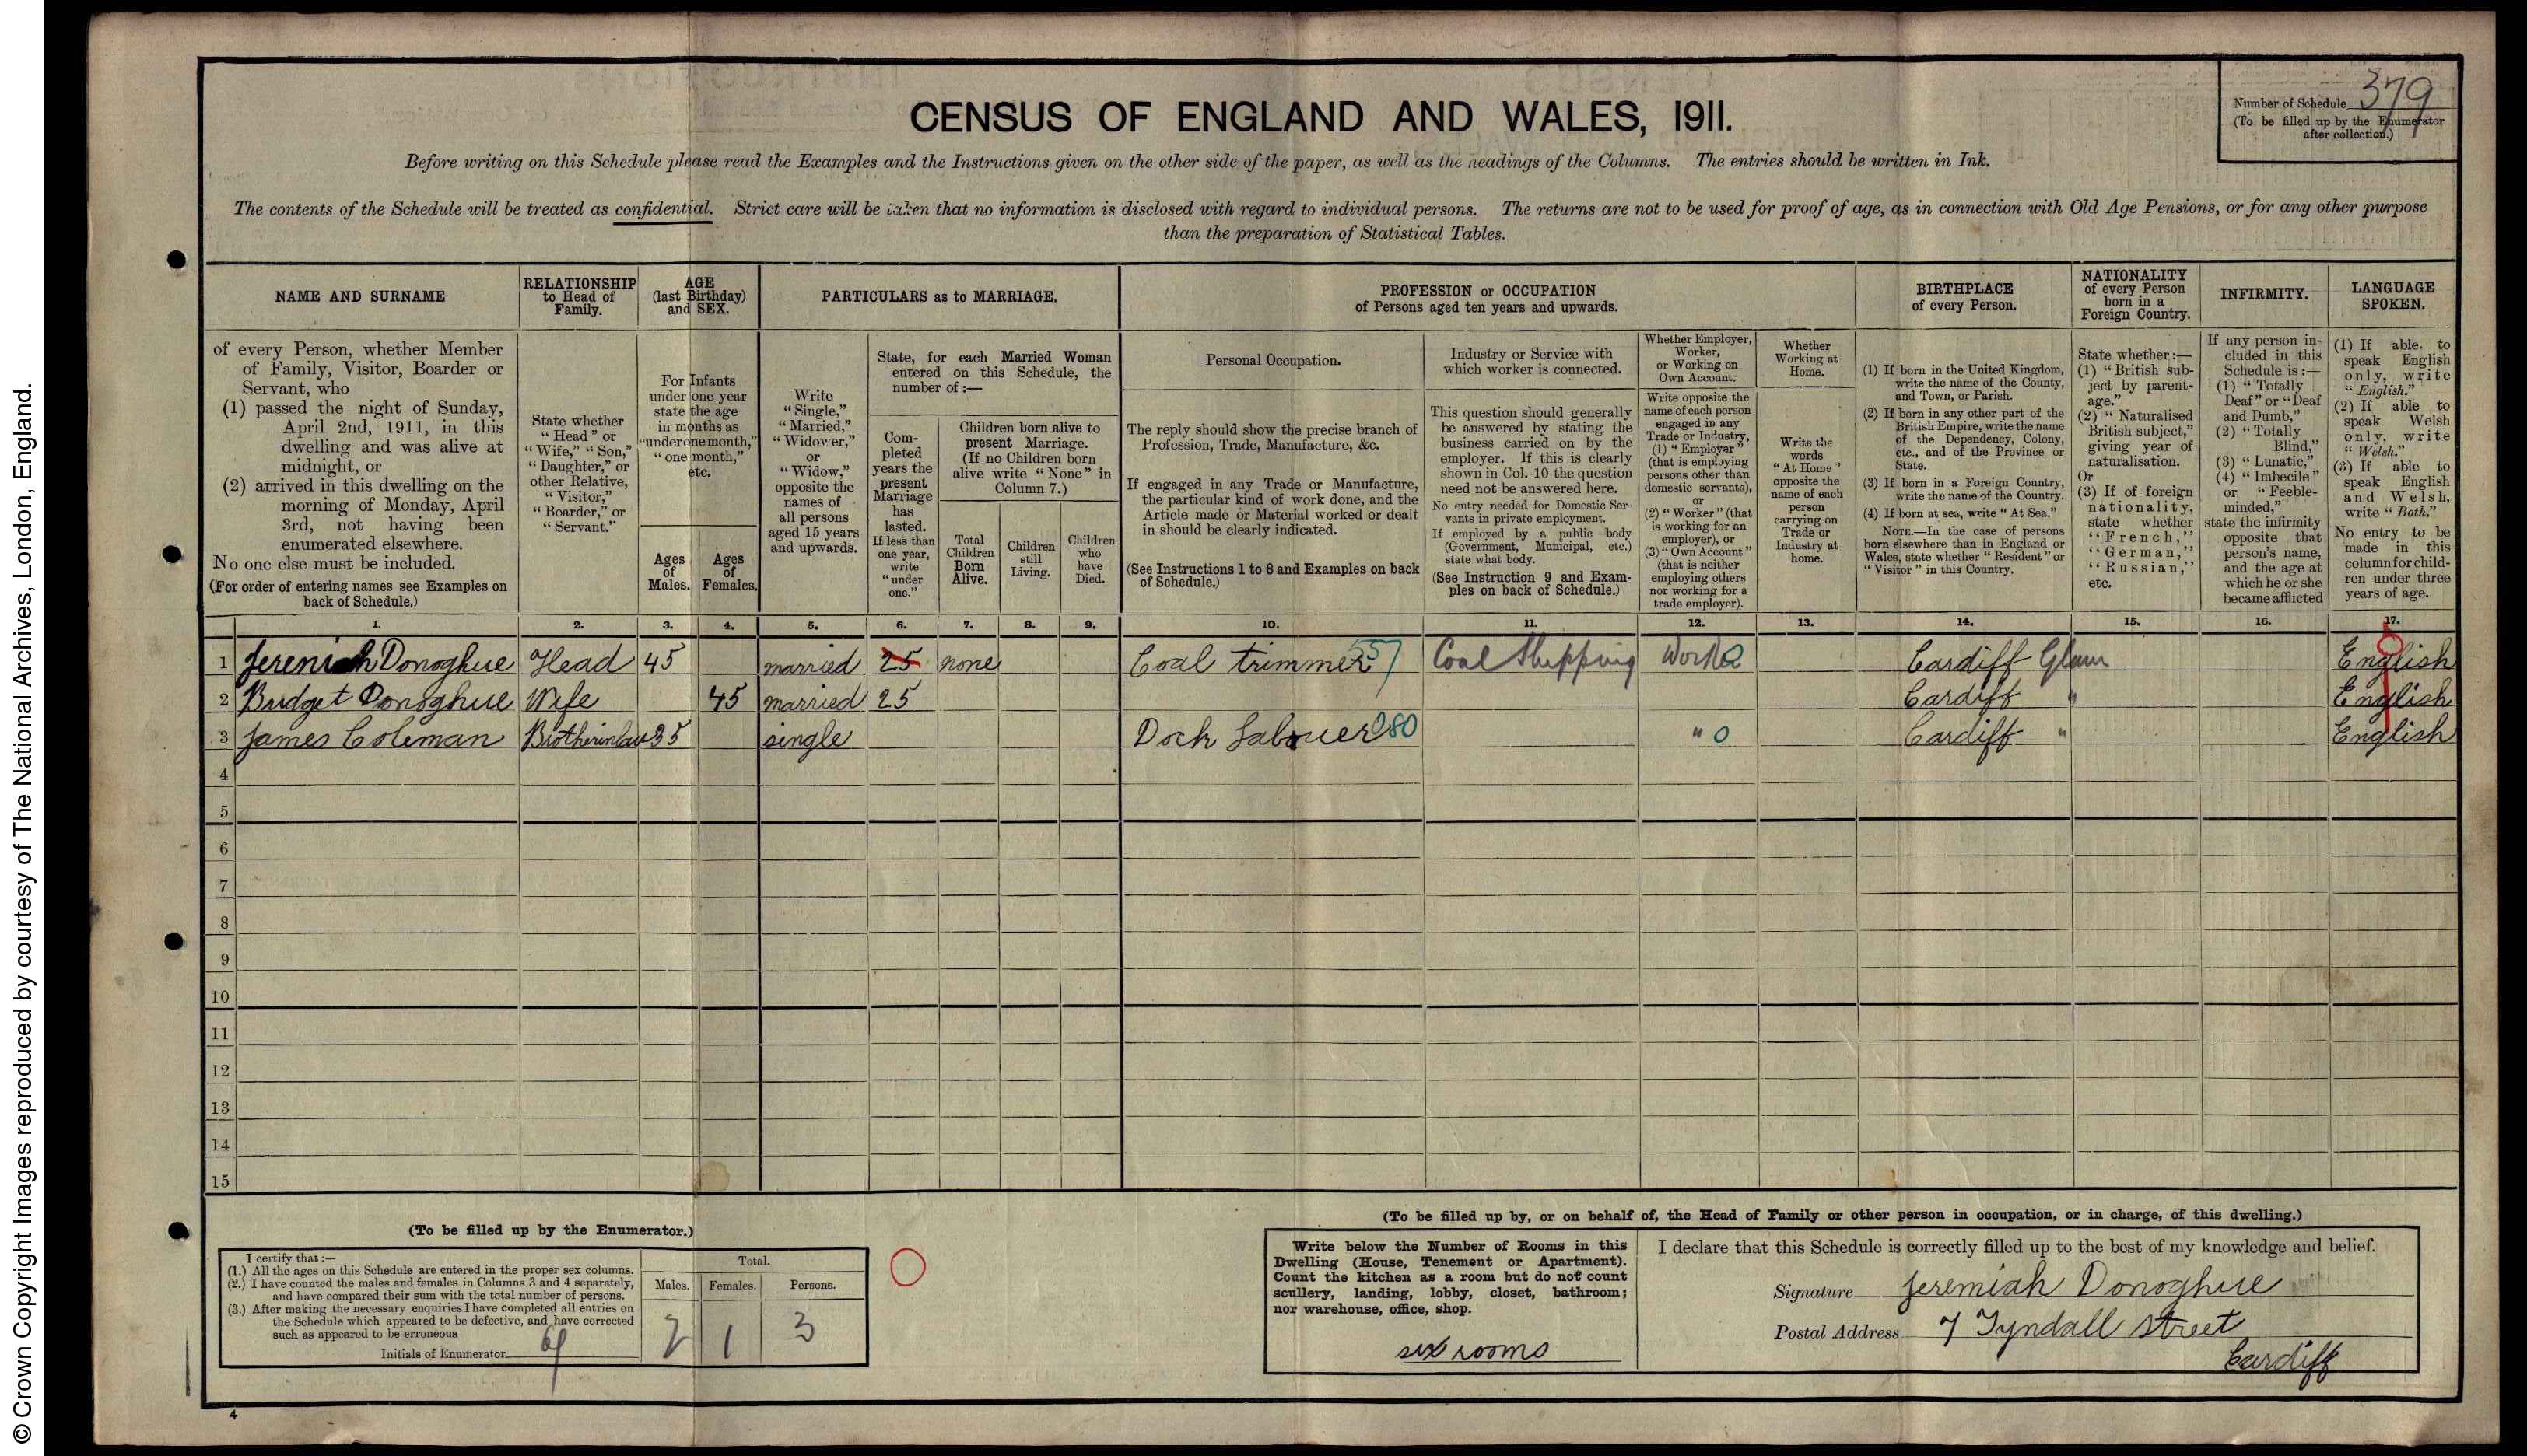 © Crown Copyright Images reproduced by courtesy of The National Archives, London, England.
CENSUS OF ENGLAND AND WALES, 1911.
Number of Schedule 379
(To be filled up by the Enumerator
after collection.)
Before writing on this Schedule please read the Examples and the Instructions given on the other side of the paper, as well as the headings of the Columns. The entries should be written in Ink.
The contents of the Schedule will be treated as confidential. Strict care will be taken that no information is disclosed with regard to individual persons. The returns are not to be used for proof of age, as in connection with Old Age Pensions, or for any other purpose
than the preparation of Statistical Tables.
NAME AND SURNAME
of every Person, whether Member
of Family, Visitor, Boarder or
Servant, who
(1) passed the night of Sunday,
April 2nd, 1911, in this
dwelling and was alive at
midnight, or
(2) arrived in this dwelling on the
morning of Monday, April
3rd, not having been
enumerated elsewhere.
No one else must be included.
(For order of entering names see Examples on
back of Schedule.)
RELATIONSHIP
to Head of
Family.
State whether
"Head" or
"Wife," "Son,"
"Daughter," or
other Relative,
"Visitor,"
"Boarder," or
"Servant."
AGE
(last Birthday)
and SEX.
For Infants
under one year
state the age
in months as
"under one month,"
"one month,"
etc.
Ages
of
Males.
Ages
of
Females.
PARTICULARS as to MARRIAGE.
Write
"Single,"
"Married,"
"Widower,"
or
"Widow,"
opposite the
names of
all persons
aged 15 years
and upwards.
State, for each Married Woman
entered on this Schedule, the
number of :—
Com-
pleted
years the
present
Marriage
has
lasted.
If less than
one year,
write
"under
one."
Children born alive to
present Marriage.
(If no Children born
alive write "None" in
Column 7.)
Total
Children
Born
Alive.
Children
still
Living.
Children
who
have
Died.
PROFESSION or OCCUPATION
of Persons aged ten years and upwards.
Personal Occupation.
The reply should show the precise branch of
Profession, Trade, Manufacture, &c.
If engaged in any Trade or Manufacture,
the particular kind of work done, and the
Article made or Material worked or dealt
in should be clearly indicated.
(See Instructions 1 to 8 and Examples on back
of Schedule.)
Industry or Service with
which worker is connected.
This question should generally
be answered by stating the
business carried on by the
employer. If this is clearly
shown in Col. 10 the question
need not be answered here.
No entry needed for Domestic Ser-
vants in private employment.
If employed by a public body
(Government, Municipal, etc.)
state what body.
(See Instruction 9 and Exam-
ples on back of Schedule.)
Whether Employer,
Worker,
or Working on
Own Account.
Write opposite the
name of each person
engaged in any
Trade or Industry,
(1) "Employer"
(that is employing
persons other than
domestic servants),
or
(2) "Worker" (that
is working for an
employer), or
(3) "Own Account"
(that is neither
employing others
nor working for a
trade employer).
Whether
Working at
Home.
Write the
words
"At Home"
opposite the
name of each
person
carrying on
Trade or
Industry at
home.
BIRTHPLACE
of every Person.
(1) If born in the United Kingdom,
write the name of the County,
and Town, or Parish.
(2) If born in any other part of the
British Empire, write the name
of the Dependency, Colony,
etc., and of the Province or
State.
(3) If born in a Foreign Country,
write the name of the Country.
(4) If born at sea, write "At Sea."
NOTE.—In the case of persons
born elsewhere than in England or
Wales, state whether "Resident" or
"Visitor" in this Country.
NATIONALITY
of every Person
born in a
Foreign Country.
State whether :—
(1) "British sub-
ject by parent-
age."
(2) "Naturalised
British subject,"
giving year of
naturalisation.
Or
(3) If of foreign
nationality,
state whether
"French,"
"German,"
"Russian,"
etc.
INFIRMITY.
If any person in-
cluded in this
Schedule is :—
(1) "Totally
Deaf" or "Deaf
and Dumb,"
(2) "Totally
Blind,"
(3) "Lunatic,"
(4) "Imbecile"
or "Feeble-
minded,"
state the infirmity
opposite that
person's name,
and the age at
which he or she
became afflicted
LANGUAGE
SPOKEN.
(1) If able to
speak English
only, write
"English."
(2) If able to
speak Welsh
only, write
"Welsh."
(3) If able to
speak English
and Welsh,
write "Both."
No entry to be
made in this
column for child-
ren under three
years of age.
1. 2. 3. 4. 5. 6. 7. 8. 9. 10. 11. 12. 13. 14. 15. 16. 17.
1 Jeremiah Donoghue Head 45 married 25 none Coal trimmer 557 Coal Shipping Work Cardiff Glam English
2 Bridget Donoghue Wife 45 married 25 Cardiff " English
3 James Coleman Brotherinlaw 35 single Dock Labouer 280 " 0 Cardiff " English
4
5
6
7
8
9
10
11
12
13
14
15
(To be filled up by the Enumerator.)
I certify that :—
(1.) All the ages on this Schedule are entered in the proper sex columns.
(2.) I have counted the males and females in Columns 3 and 4 separately,
and have compared their sum with the total number of persons.
(3.) After making the necessary enquiries I have completed all entries on
the Schedule which appeared to be defective, and have corrected
such as appeared to be erroneous
Initials of Enumerator
Total.
Males. Females. Persons.
2 1 3
(To be filled up by, or on behalf of, the Head of Family or other person in occupation, or in charge, of this dwelling.)
Write below the Number of Rooms in this
Dwelling (House, Tenement or Apartment).
Count the kitchen as a room but do not count
scullery, landing, lobby, closet, bathroom;
nor warehouse, office, shop.
six rooms
I declare that this Schedule is correctly filled up to the best of my knowledge and belief.
Signature Jeremiah Donoghue
Postal Address 7 Tyndall street
Cardiff
4